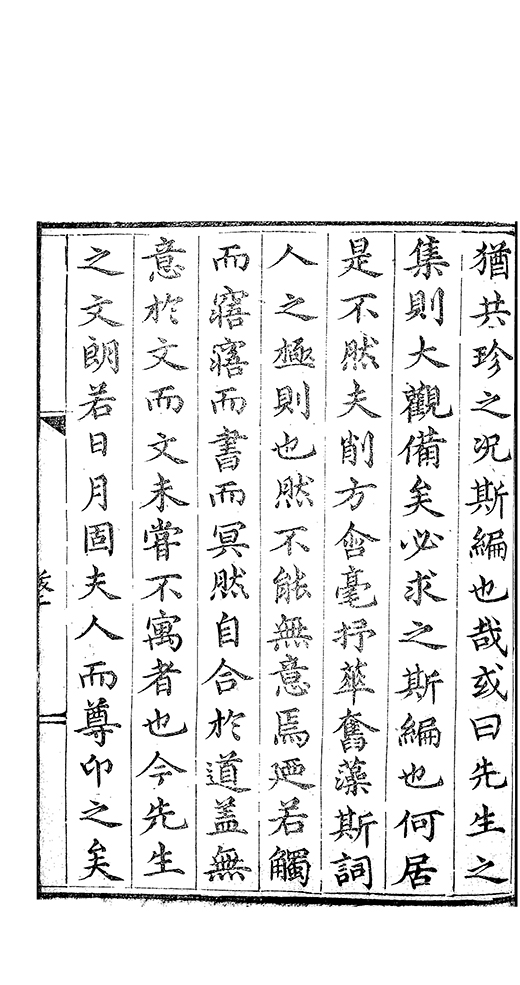 猶共珍之况斯編也哉或曰先生之
集則大觀備矣必求之斯編也何居
是不然夫削方含毫抒華奮藻斯詞
人之極則也然不能無意焉廼若觸
而寤寤而書而冥然自合於道蓋無
意於文而文未嘗不寓者也今先生
之文朗若日月固夫人而尊卬之矣